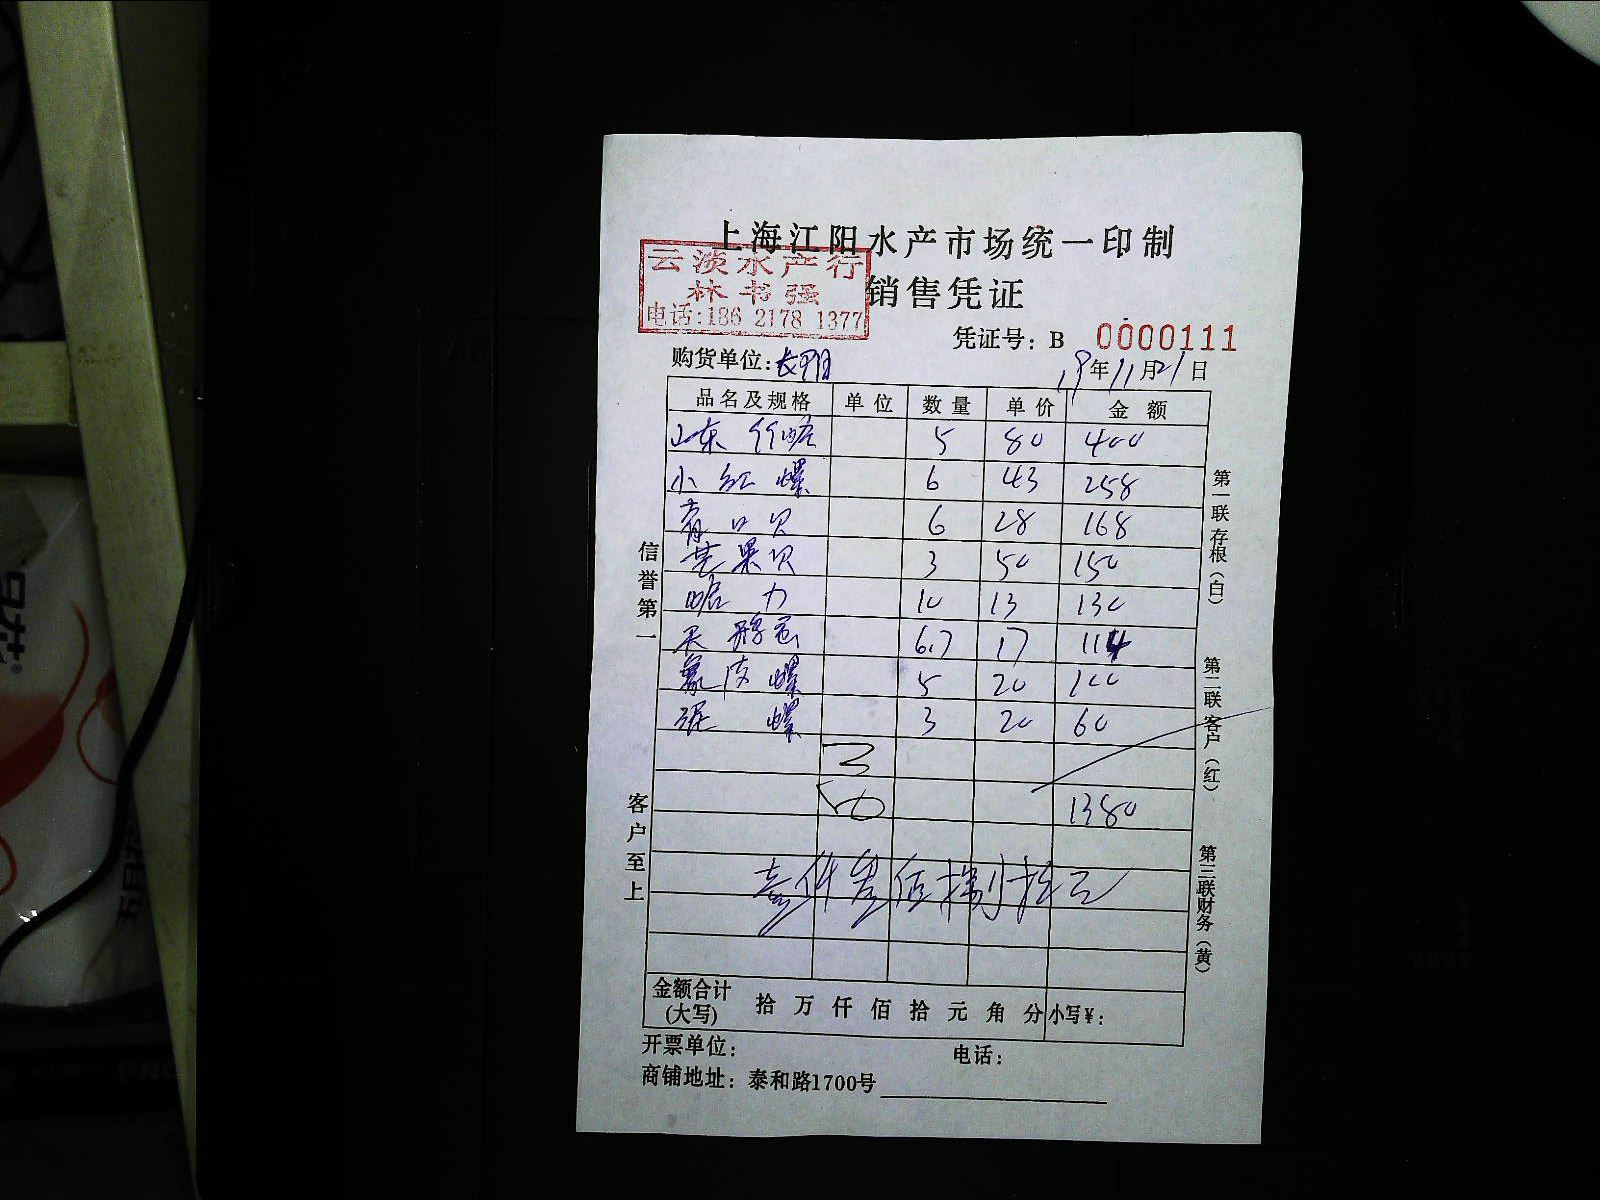 上海江阳水产市场统一印制
云淡水产行
林书强
电话:186 2178 1377
销售凭证
凭证号: B 0000111
购货单位: 19年11月21日
品名及规格 单位 数量 单价 金额
山东竹蛏 5 80 400
小红螺 6 43 258
青口贝 6 28 168
芒果贝 3 50 150
6 10 13 130
6.7 17 114
象皮螺 5 20 100
泥螺 3 20 60
1380
壹仟叁佰捌拾元
信誉第一
客户至上
第一联存根(白)
第二联客户(红)
第三联财务(黄)
金额合计(大写) 拾 万 仟 佰 拾 元 角 分 小写¥:
开票单位: 电话:
商铺地址: 泰和路1700号